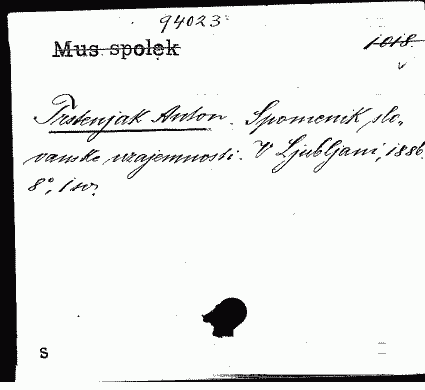 94023
Mus spolek 1018
Trstenjak Anton. Spomenik slo-
vanske uzajemnosti. V Ljubljani, 1886.
8°, 1 sv.
S